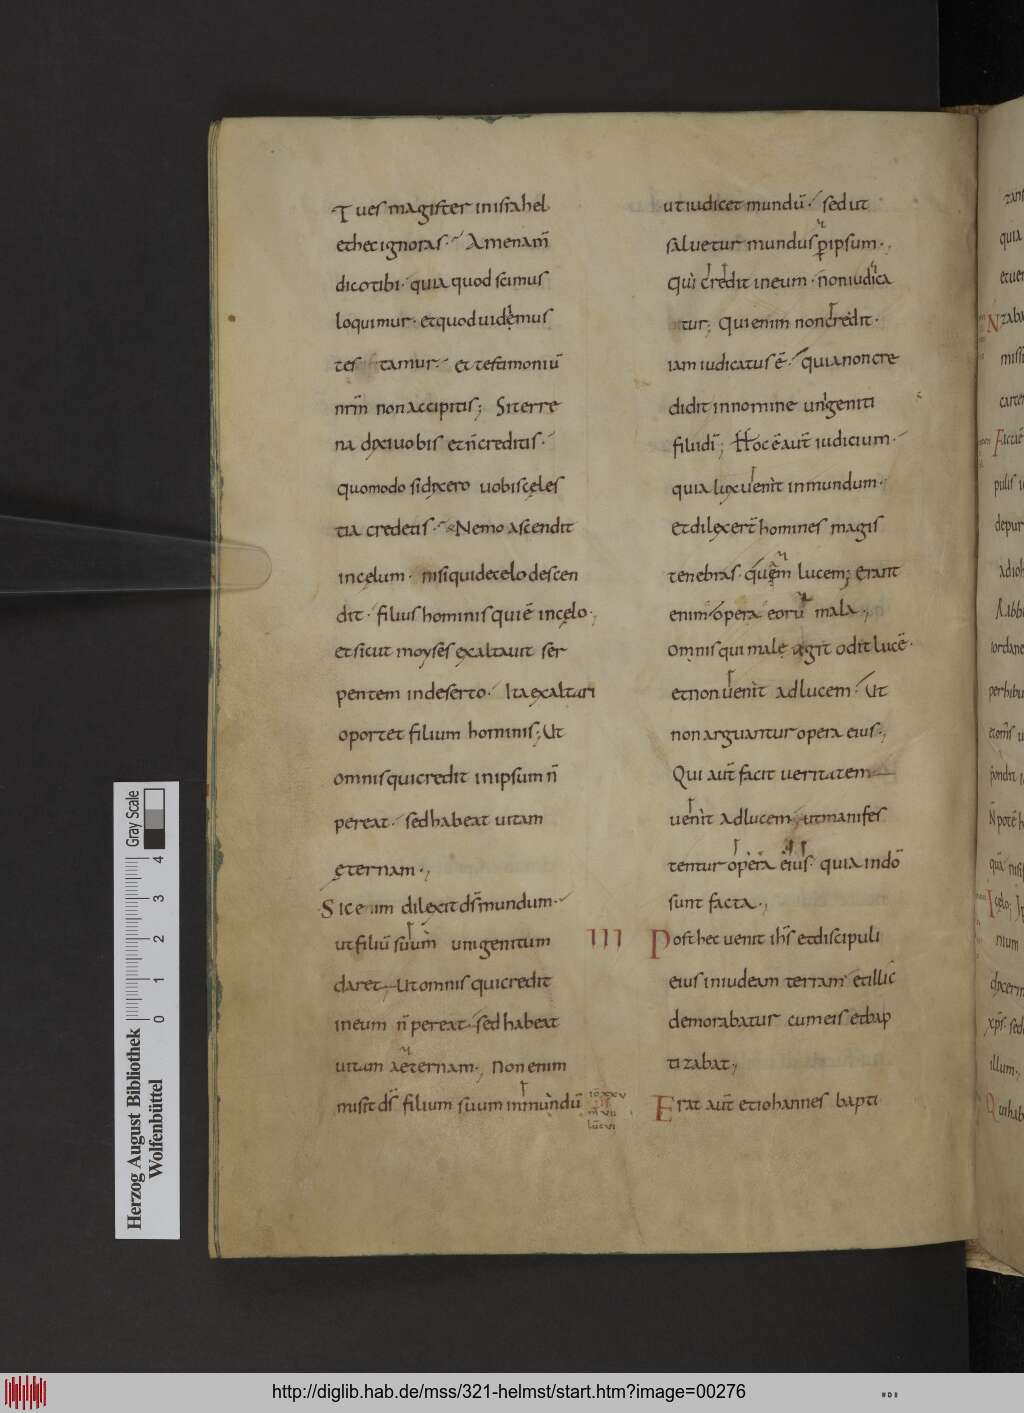 Tu es magister in israhel
et hec ignoras. Amen am̄
dico tibi. quia quod scimus
loquimur. et quod uidemus
tes tamur. et testimoniū
nrm̄ non accipitis; Si terre
na dixi uobis et n̄ creditis.
quomodo si dixero uobis cęles
tia credetis. Nemo ascendit
in cęlum. nisi qui de celo descen
dit. filius hominis qui ē in cęlo.,
et sicut moyses exaltauit ser
pentem in deserto. Ita exaltari
oportet filium hominis; Ut
omnis qui credit in ipsum n̄
pereat. sed habeat uitam
ęternam.,
Sic enim dilexit ds̄ mundum.
ut filiū suum unigenitum
daret. Ut omnis qui credit
in eum n̄ pereat. sed habeat
uitam aeternam., Non enim
misit ds̄ filium suum in mundū
ut iudicet mundū. sed ut
saluetur mundus ꝑ ipsum.,
Qui credit in eum. non iudica
tur; Qui enim non credit.
iam iudicatus ē. quia non cre
didit in nomine unigeniti
filii di; Hoc ē aut̄ iudicium.
quia lux uenit in mundum.
Et dilexer̄ homines magis
tenebras. quęm lucem; erant
enim. opera eorū mala.,
Omnis qui male agit odit lucē.
et non uenit ad lucem. Ut
non arguantur opera eius.,
Qui aut̄ facit ueritatem
uenit ad lucem, ut manifes
tentur opera eius. quia in dō
sunt facta.,
III Post hec uenit ihs̄ et discipuli
eius in iudeam terram et illic
demorabatur cum eis et bap
tizabat,
iō xxv
m̄ vii
luc̄ vi
Erat aut̄ et iohannes bapti
zan
quia
Nzaba
missi
pulis
depur
adioh
Rabbi
iordane
perhibu
illum.,
Herzog August Bibliothek
Wolfenbüttel
Gray Scale
0 1 2 3 4
http://diglib.hab.de/mss/321-helmst/start.htm?image=00276